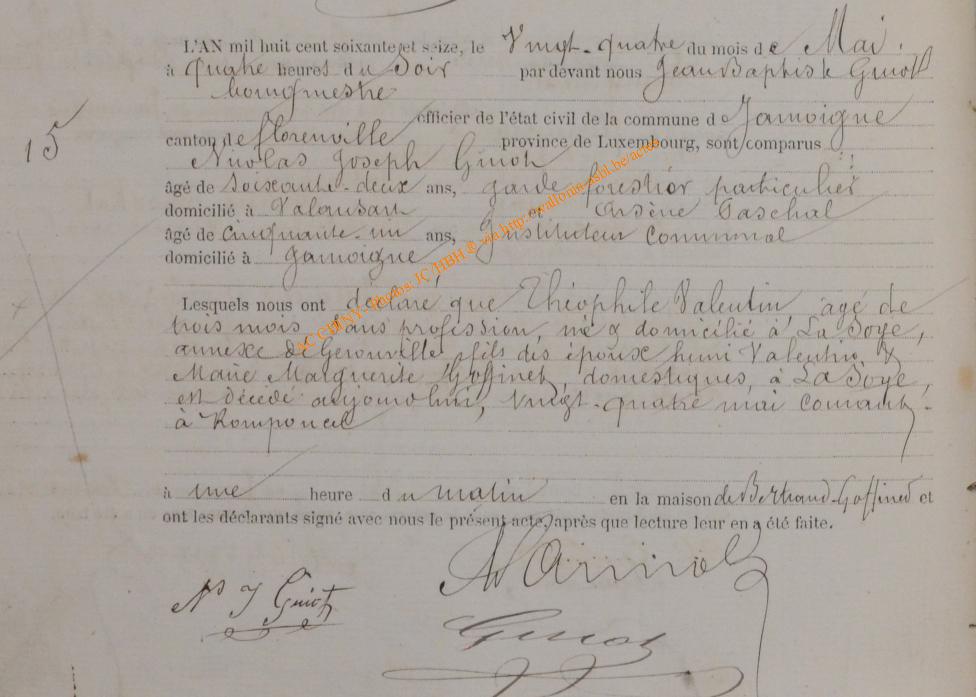 L'AN mil huit cent soixante et seize, le Vingt-quatre du mois de Mai.
à quatre heures du Soir par devant nous Jean Baptiste Guiot
bourgmestre
officier de l'état civil de la commune de Jamoigne
15
canton de florenville province de Luxembourg, sont comparus
Nicolas Joseph Guiot
âgé de Soixante-deux ans, garde forestier particulier
domicilié à Valansart et Arsène Paschal
âgé de Cinquante-un ans, Instituteur Communal
domicilié à Jamoigne
Lesquels nous ont déclaré que Théophile Valentin, âgé de
trois mois, sans profession, né & domicilié à La Soye,
annexe de Gerouville, fils des époux henri Valentin &
Marie Marguerite Goffinet, domestiques, à La Soye,
est décédé aujourd'hui, vingt-quatre mai courant,
à Romponcel
à une heure du matin en la maison de Bertrand-Goffinet et
ont les déclarants signé avec nous le présent acte, après que lecture leur en a été faite.
Ns J Guiot
Guiot
AC CHINY- Photos: JC/HBH & via http://wallonia-asbl.be/actes